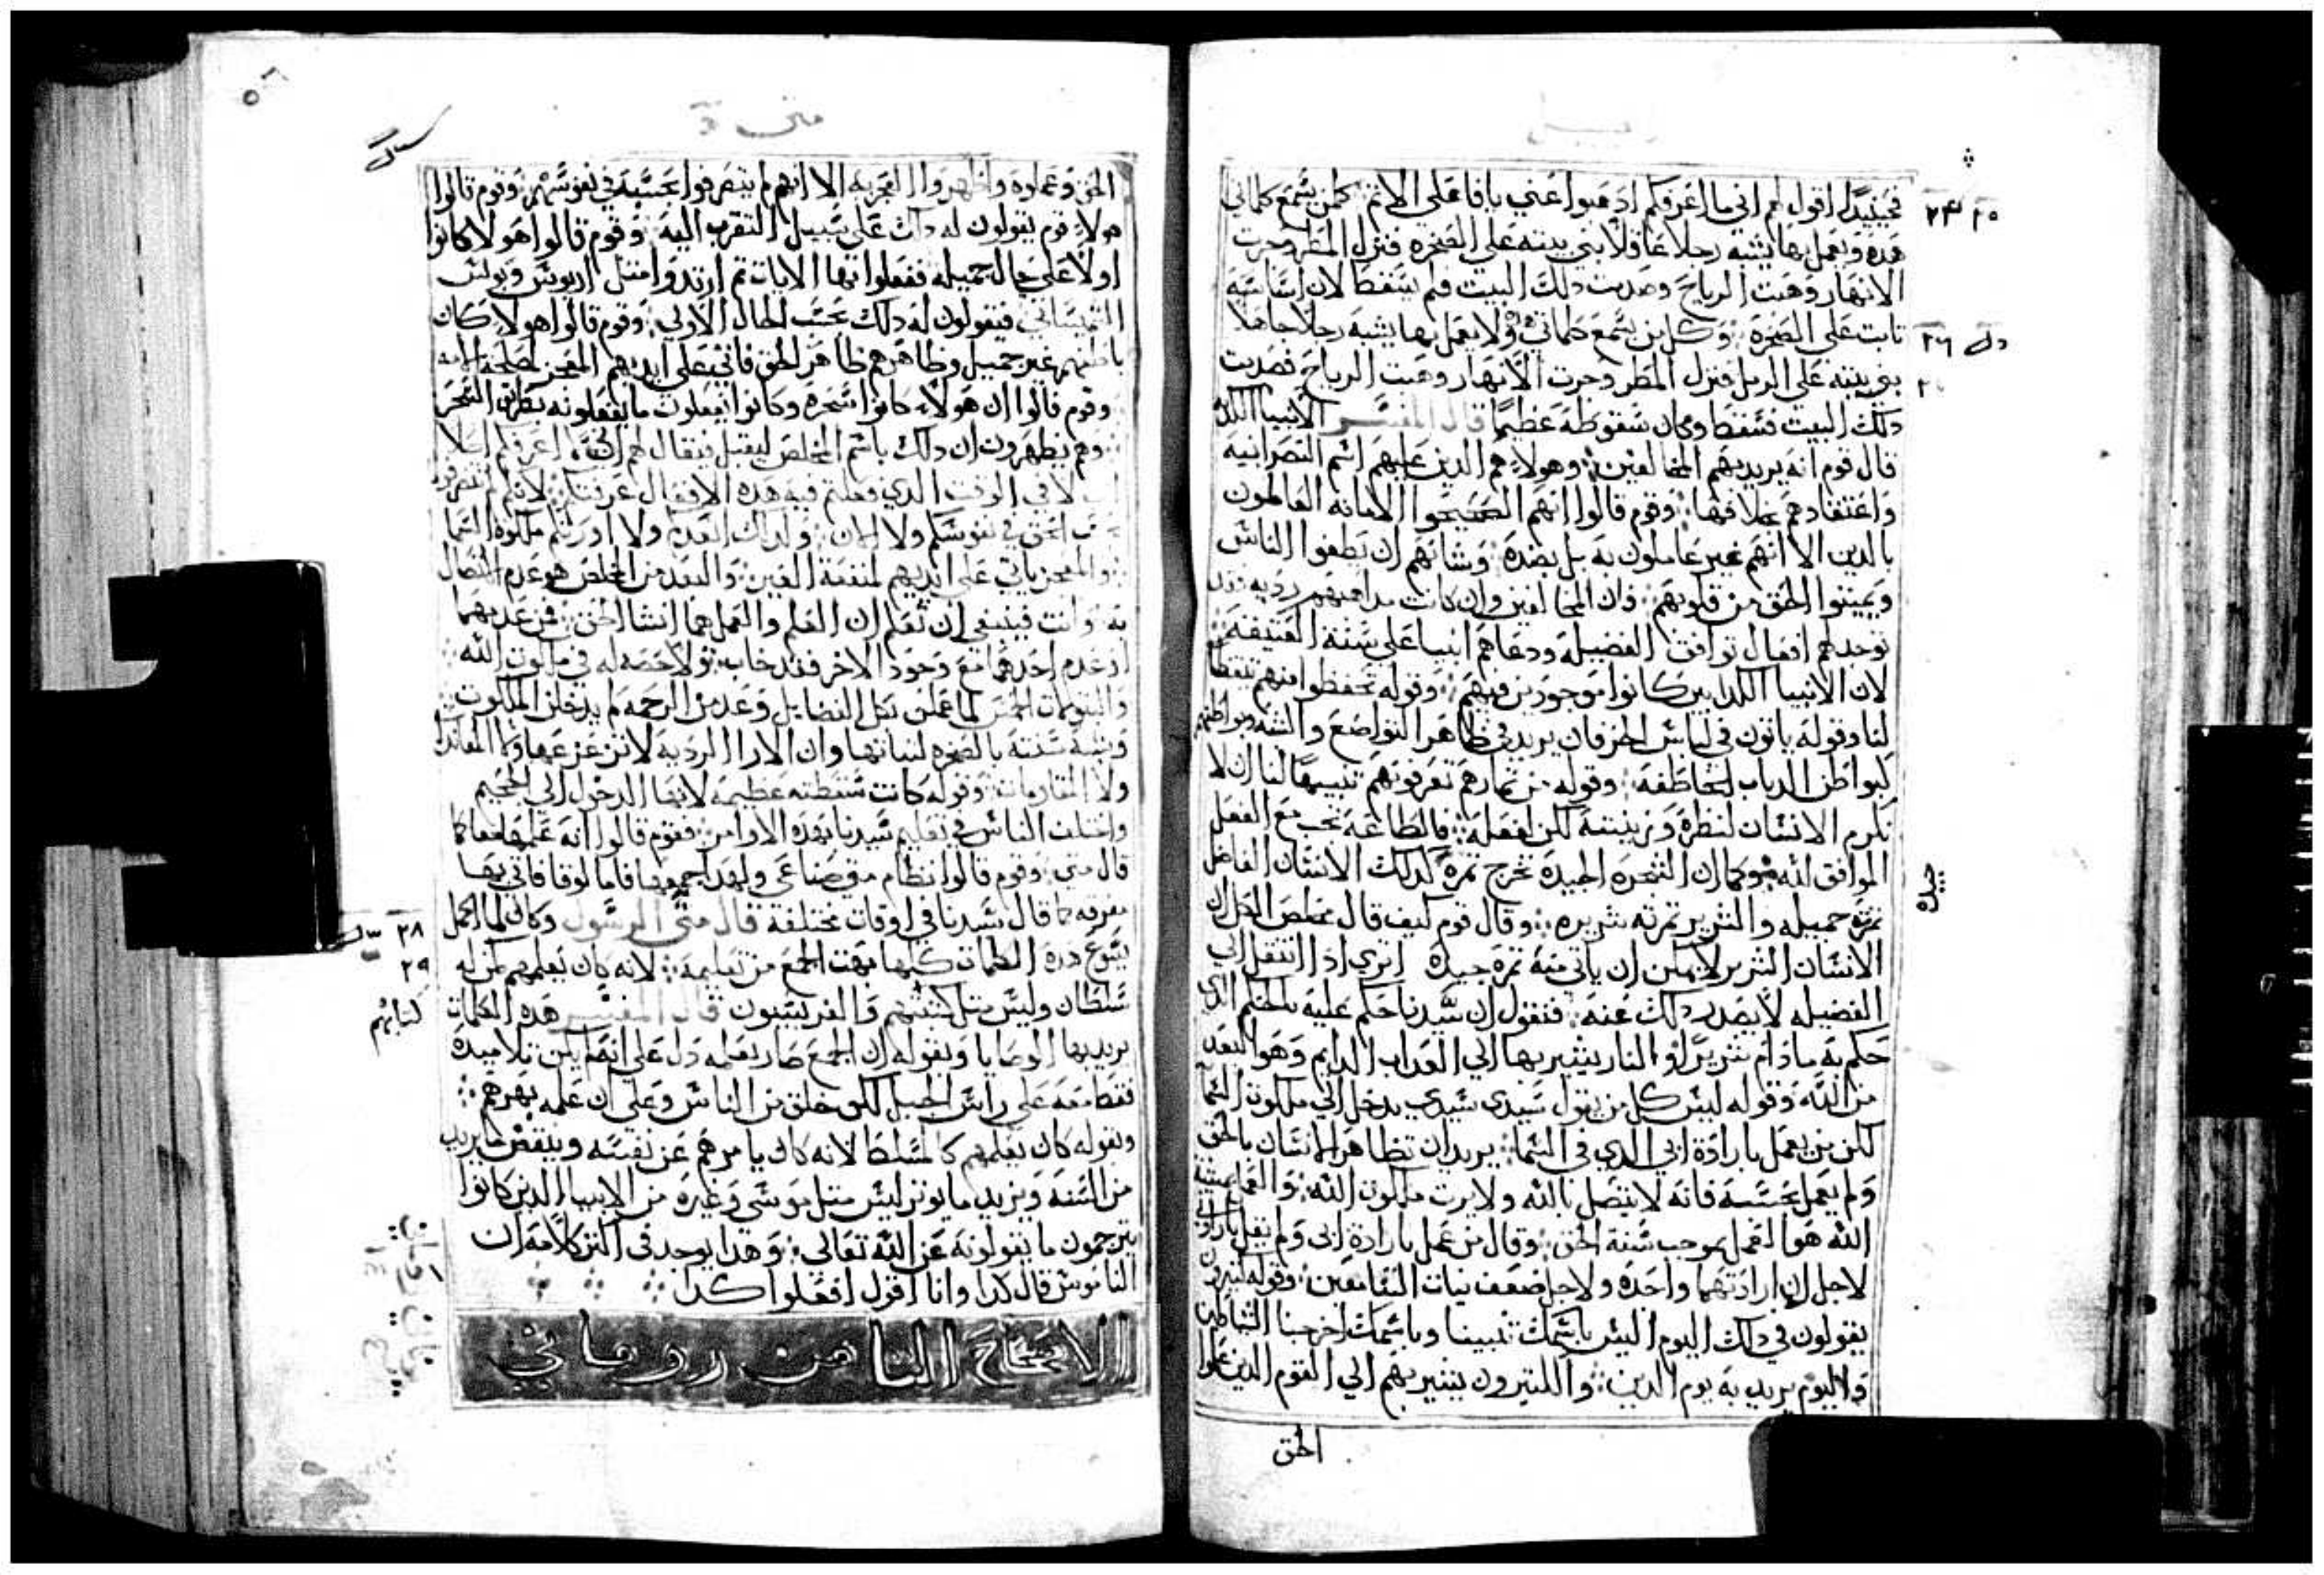 فحينيدا اقول لهم اني ما اعرفكم ادهبوا عني يا فاعلي الاثم كلمن يسمع كلماتي
هده ويعمل بها يشبه رجلا عاقلا بني بيته علي الصخره فنزل المطر وجرت
الانهار وهبت الرياح وصدمت دلك البيت فلم يسقط لان اساسه
تابت علي الصخره وكل من يسمع كلماتي ولا يعمل بها يشبه رجلا جاهلا
بني بيته علي الرمل فنزل المطر وجرت الانهار وهبت الرياح فصدمت
دلك البيت فسقط وكان سقوطه عظيما قال المفسر الانبيا الكدبه
قال قوم انه يريد بهم المخالفين وهولاء هم الدين عليهم اسم النصرانيه
واعتقادهم بخلافها وقوم قالوا انهم الصحيحوا الامانه العالمون
بالدين الا انهم غير عاملون به بل بضده وشانهم ان يطغوا الناس
ويميتوا الحق من قلوبهم فان المخالفين وان كانت مداهبهم رديه فقد
توجد لهم افعال توافق الفضيله ودعاهم انبيا علي سنة العتيقه
لان الانبيا الكدابين كانوا موجودين فيهم وقوله تحفظوا منهم
لنا وقوله ياتون في لباس الخرفان يريد في ظاهر التواضع
كبواطن الدياب الخاطفه وقوله من تمارهم تعرفونهم تنبيها لنا ان لا
نكرم الانسان لنظره وزينته لكن لفعله فالطاعه تجب مع الفعل
الموافق لله وكما ان الشجره الجيده تخرج تمرة كدلك الانسان الفاضل
تمرته جميله والشرير تمرته شريره وقال قوم كيف قال مخلص الكل ان
الانسان الشرير لا يمكن ان ياتي منه تمرة جيده اتري ادا انتقل الي
الفضيله لا يصدر دلك عنه فنقول ان سيدنا حكم عليه بالحكم الدي
حكم به ما دام شريرا والنار يشير بها الي العداب الدايم وهو البعد
من الله وقوله ليس كل من يقول سيدي سيدي يدخل الي ملكوت السما
لكن من يعمل بارادة ابي الدي في السما يريد ان تظاهر الانسان بالحق
ولم يعمل بحسبه فانه لا يتصل بالله ولا يرت ملكوت الله
الله هو العمل بموجب سنة الحق وقال من عمل بارادة ابي ولم يقل بارادتي
لاجل ان ارادتهما واحده ولاجل ضعف نيات السامعين وقوله كتيرون
يقولون في دلك اليوم اليس باسمك تنبينا وباسمك اخرجنا الشياطين
واليوم يريد به يوم الدين والكتيرون يشير بهم الي القوم الدين
الحق
متي
الحق وعمادة واظهروا الا انهم لم يتصرفوا بحسبه في نفوسهم وقوم قالوا
هولاء قوم يقولون له دلك علي سبيل التقرب اليه وقوم قالوا هولا كانوا
اولا علي حال جميله ففعلوا بها الايات تم ارتدوا متل اريوس وبولس
فيقولون له دلك بحسب الحال الاولي وقوم قالوا هولا كان
باطنهم غير جميل وظاهرهم ظاهر الحق فاتي علي ايديهم المعجز لمصلحة الامه
وقوم قالوا ان هولاء كانوا سحره وكانوا يفعلون ما يفعلونه بطرايق السحر
وهم يظهرون ان دلك باسم المخلص ليقبل فيقال لهم اني ما اعرفكم اصلا
لا في الوقت الدي فعلتم فيه هده الافعال عرفتكم لانكم لم تتصرفوا
الحق في نفوسكم ولا الان ولدلك ابعدكم ولا اورتكم ملكوت السما
والمعجز ياتي علي ايديهم لمنفعة الغير والبعد من المخلص هو عدم الاتصال
به وانت فينبغي ان تعلم ان العلم والعمل هما انشا الحق فمن عدمهما
او عدم احدهما مع وجود الاخر فقد خاب ولا حصه له في ملكوت الله
والبتولات الخمس لما عملن بكل الفضايل وعدمن الرحمه لم يدخلن الملكوت
وشبه سنته بالصخره لتباتها وان الارا الرديه لا تزعزعها ولا المعاندات
ولا المقاومات وقوله كانت سقطته عظيمه لانها الدخول الي الجحيم
واختلف الناس في تعليم سيدنا بهده الاوامر فقوم قالوا انه علمها معا كما
قال متي وقوم قالوا نظام متي صناعي ولهدا جمعها فاما لوقا فاتي بها
مفرقه كما قال سيدنا في اوقات مختلفة قال متي الرسول وكان لما اكمل
يسوع هده الكلمات كلها بهت الجمع من تعليمه لانه كان يعلمهم كمن له
سلطان وليس متل كتبتهم والفريسيون قال المفسر هده الكلمات
يريد بها الوصايا وبقوله ان الجمع صار يعلمه دل علي انه لم يكن تلاميده
فقط معه علي راس الجبل لكن خلق من الناس وعلي ان علمه بهرهم
وبقوله كان يعلمهم كالمسلط لانه كان يامرهم عن نفسه وينقض ما يريد
من السنه ويزيد ما يوتر ليس متل موسي وغيره من الانبيا الدين كانوا
يترجمون ما يقولونه عن الله تعالي وهدا يوجد في اكتر كلامه ان
الناموس قال كدا وانا اقول افعلوا كدا
الاصحاح التامن روماني